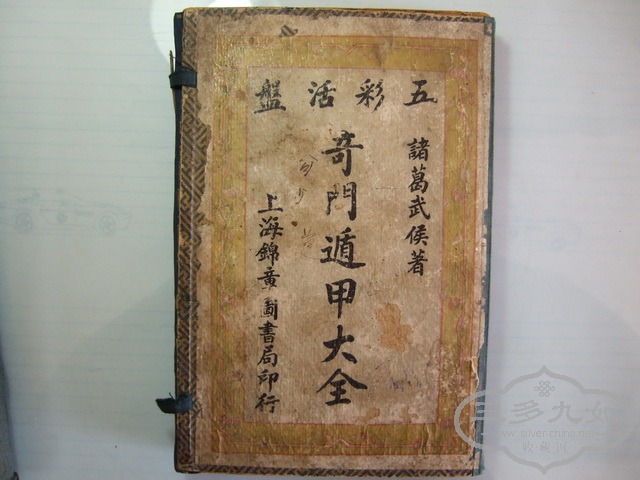 五彩活盤
諸葛武侯著
奇門遁甲大全
上海錦章圖書局印行
三多九如
收藏網